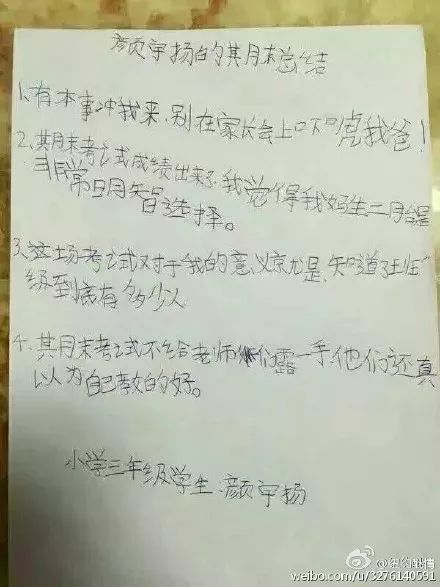 颜宇扬的其月末总结
1、有本事冲我来,别在家长会上吓唬我爸!
2.其月末考试成绩出来了,我觉得我妈生二月台是
非常明智选择。
3、这场考试对于我的意义京尤是,知道了班
级到底有多少人
4、其月末考试不给老师们露一手,他们还真
以为自己教的好。
小学三年级学生:颜宇扬
weibo.com/u/3276140591